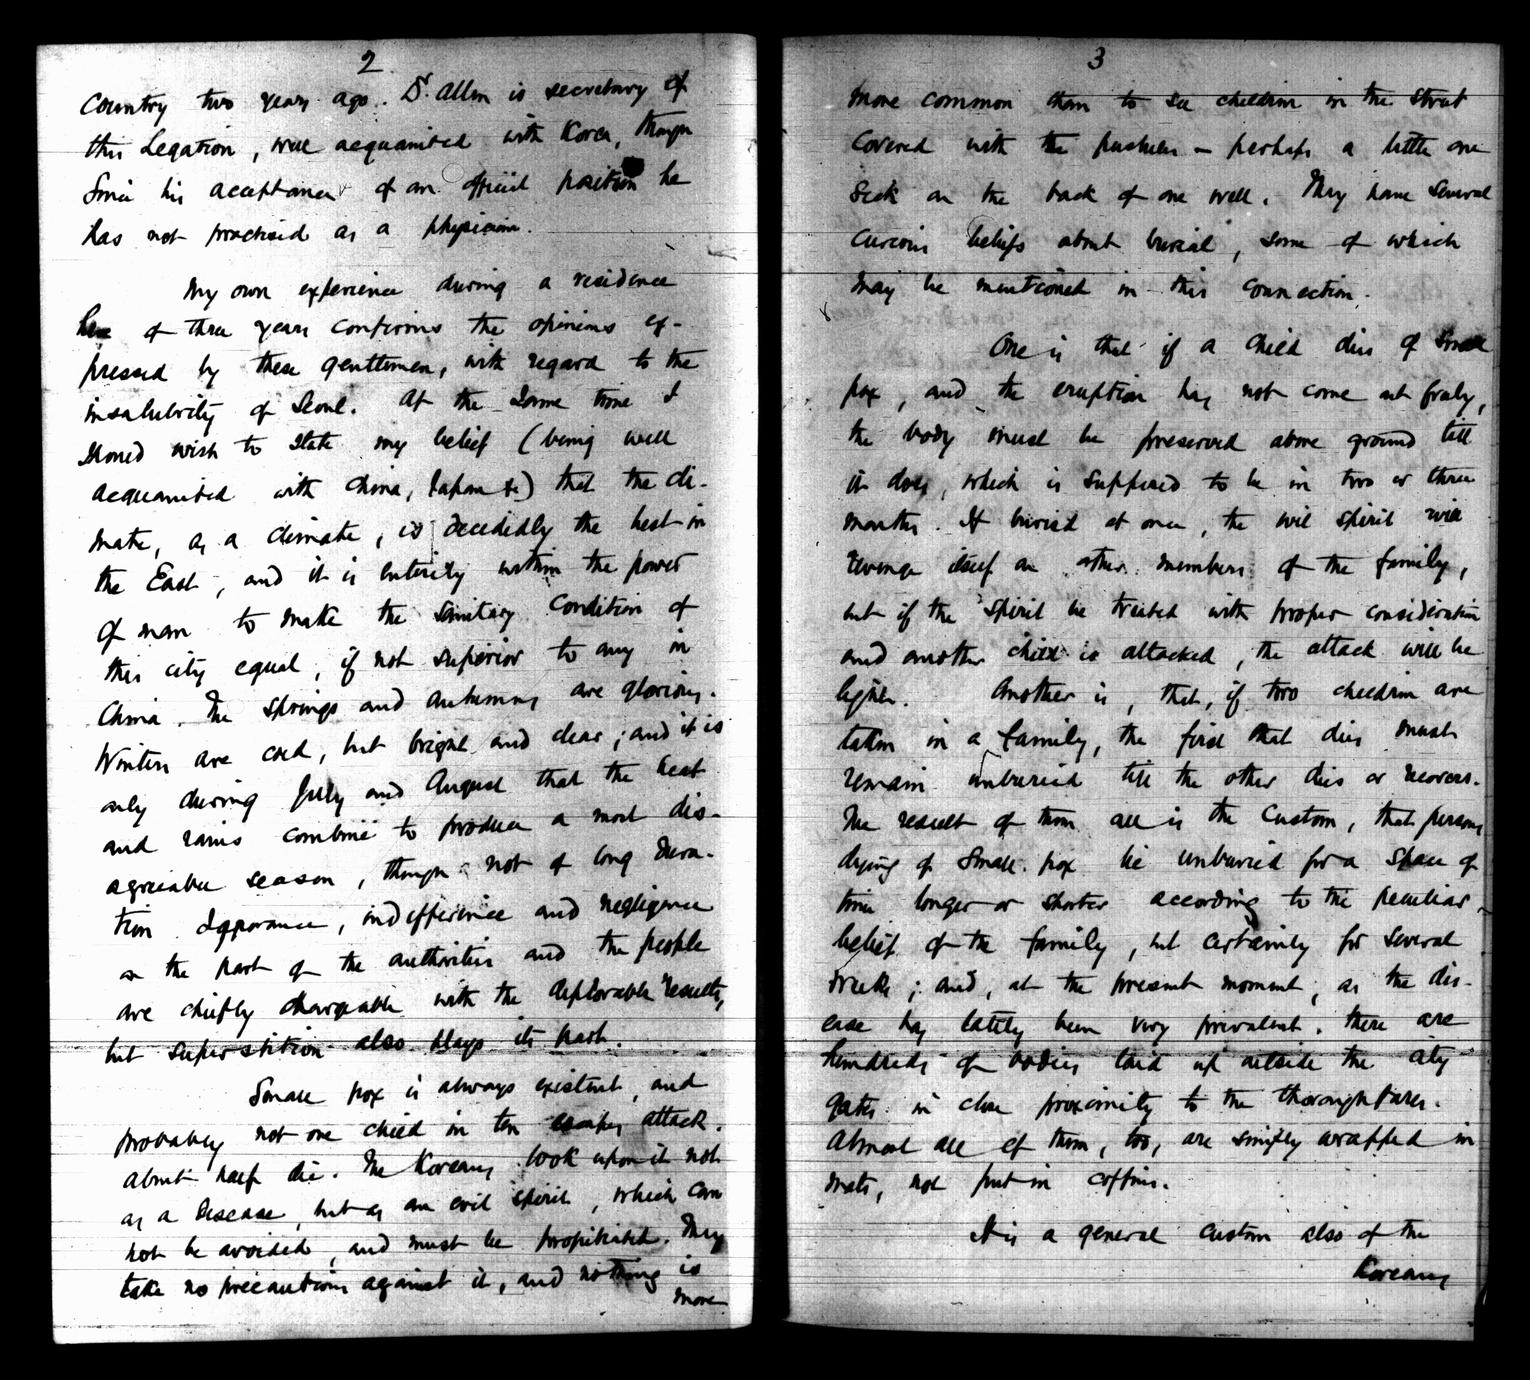 2
Country two years ago. Dr. Allen is secretary of
this Legation, well acquainted with Korea, though
Since his acceptance of an official position he
has not practised as a physician.
My own experience during a residence
here of three years confirms the opinions ex-
pressed by these gentlemen, with regard to the
insalubrity of Seoul. At the same time I
should wish to state my belief (being well
acquainted with China, Japan &c) that the cli-
mate, as a climate, is decidedly the best in
the East, and it is entirely within the power
of man to make the sanitary condition of
this city equal, if not superior to any in
China. The springs and autumns are glorious.
Winters are cold, but bright and clear; and it is
only during July and August that the heat
and rains combine to produce a most dis-
agreeable season, though not of long dura-
tion. Ignorance, indifference and negligence
on the part of the authorities and the people
are chiefly chargeable with the deplorable results,
but superstition also plays its part.
Small pox is always existent, and
probably not one child in ten escapes attack.
About half die. The Koreans look upon it not
as a disease, but as an evil spirit, which can
not be avoided, and must be propitiated. They
take no precautions against it, and nothing is
more
3
more common than to see children in the street
covered with the pustules – perhaps a little one
sick on the back of one well. They have several
curious beliefs about burial, some of which
may be mentioned in this connection.
One is that if a child dies of small
pox, and the eruption has not come out freely,
the body must be preserved above ground till
it does, which is supposed to be in two or three
months. If buried at once, the evil spirit will
revenge itself on other members of the family,
but if the spirit be treated with proper consideration
and another child is attacked, the attack will be
light. Another is, that, if two children are
taken in a family, the first that dies must
remain unburied till the other dies or recovers.
The result of them all is the custom, that persons
dying of small pox lie unburied for a space of
time longer or shorter according to the peculiar
belief of the family, but certainly for several
weeks; and, at the present moment, as the dis-
ease has lately been very prevalent, there are
hundreds of bodies laid up outside the city
gates in close proximity to the thoroughfares.
Almost all of them, too, are simply wrapped in
mats, not put in coffins.
It is a general custom also of the
Koreans